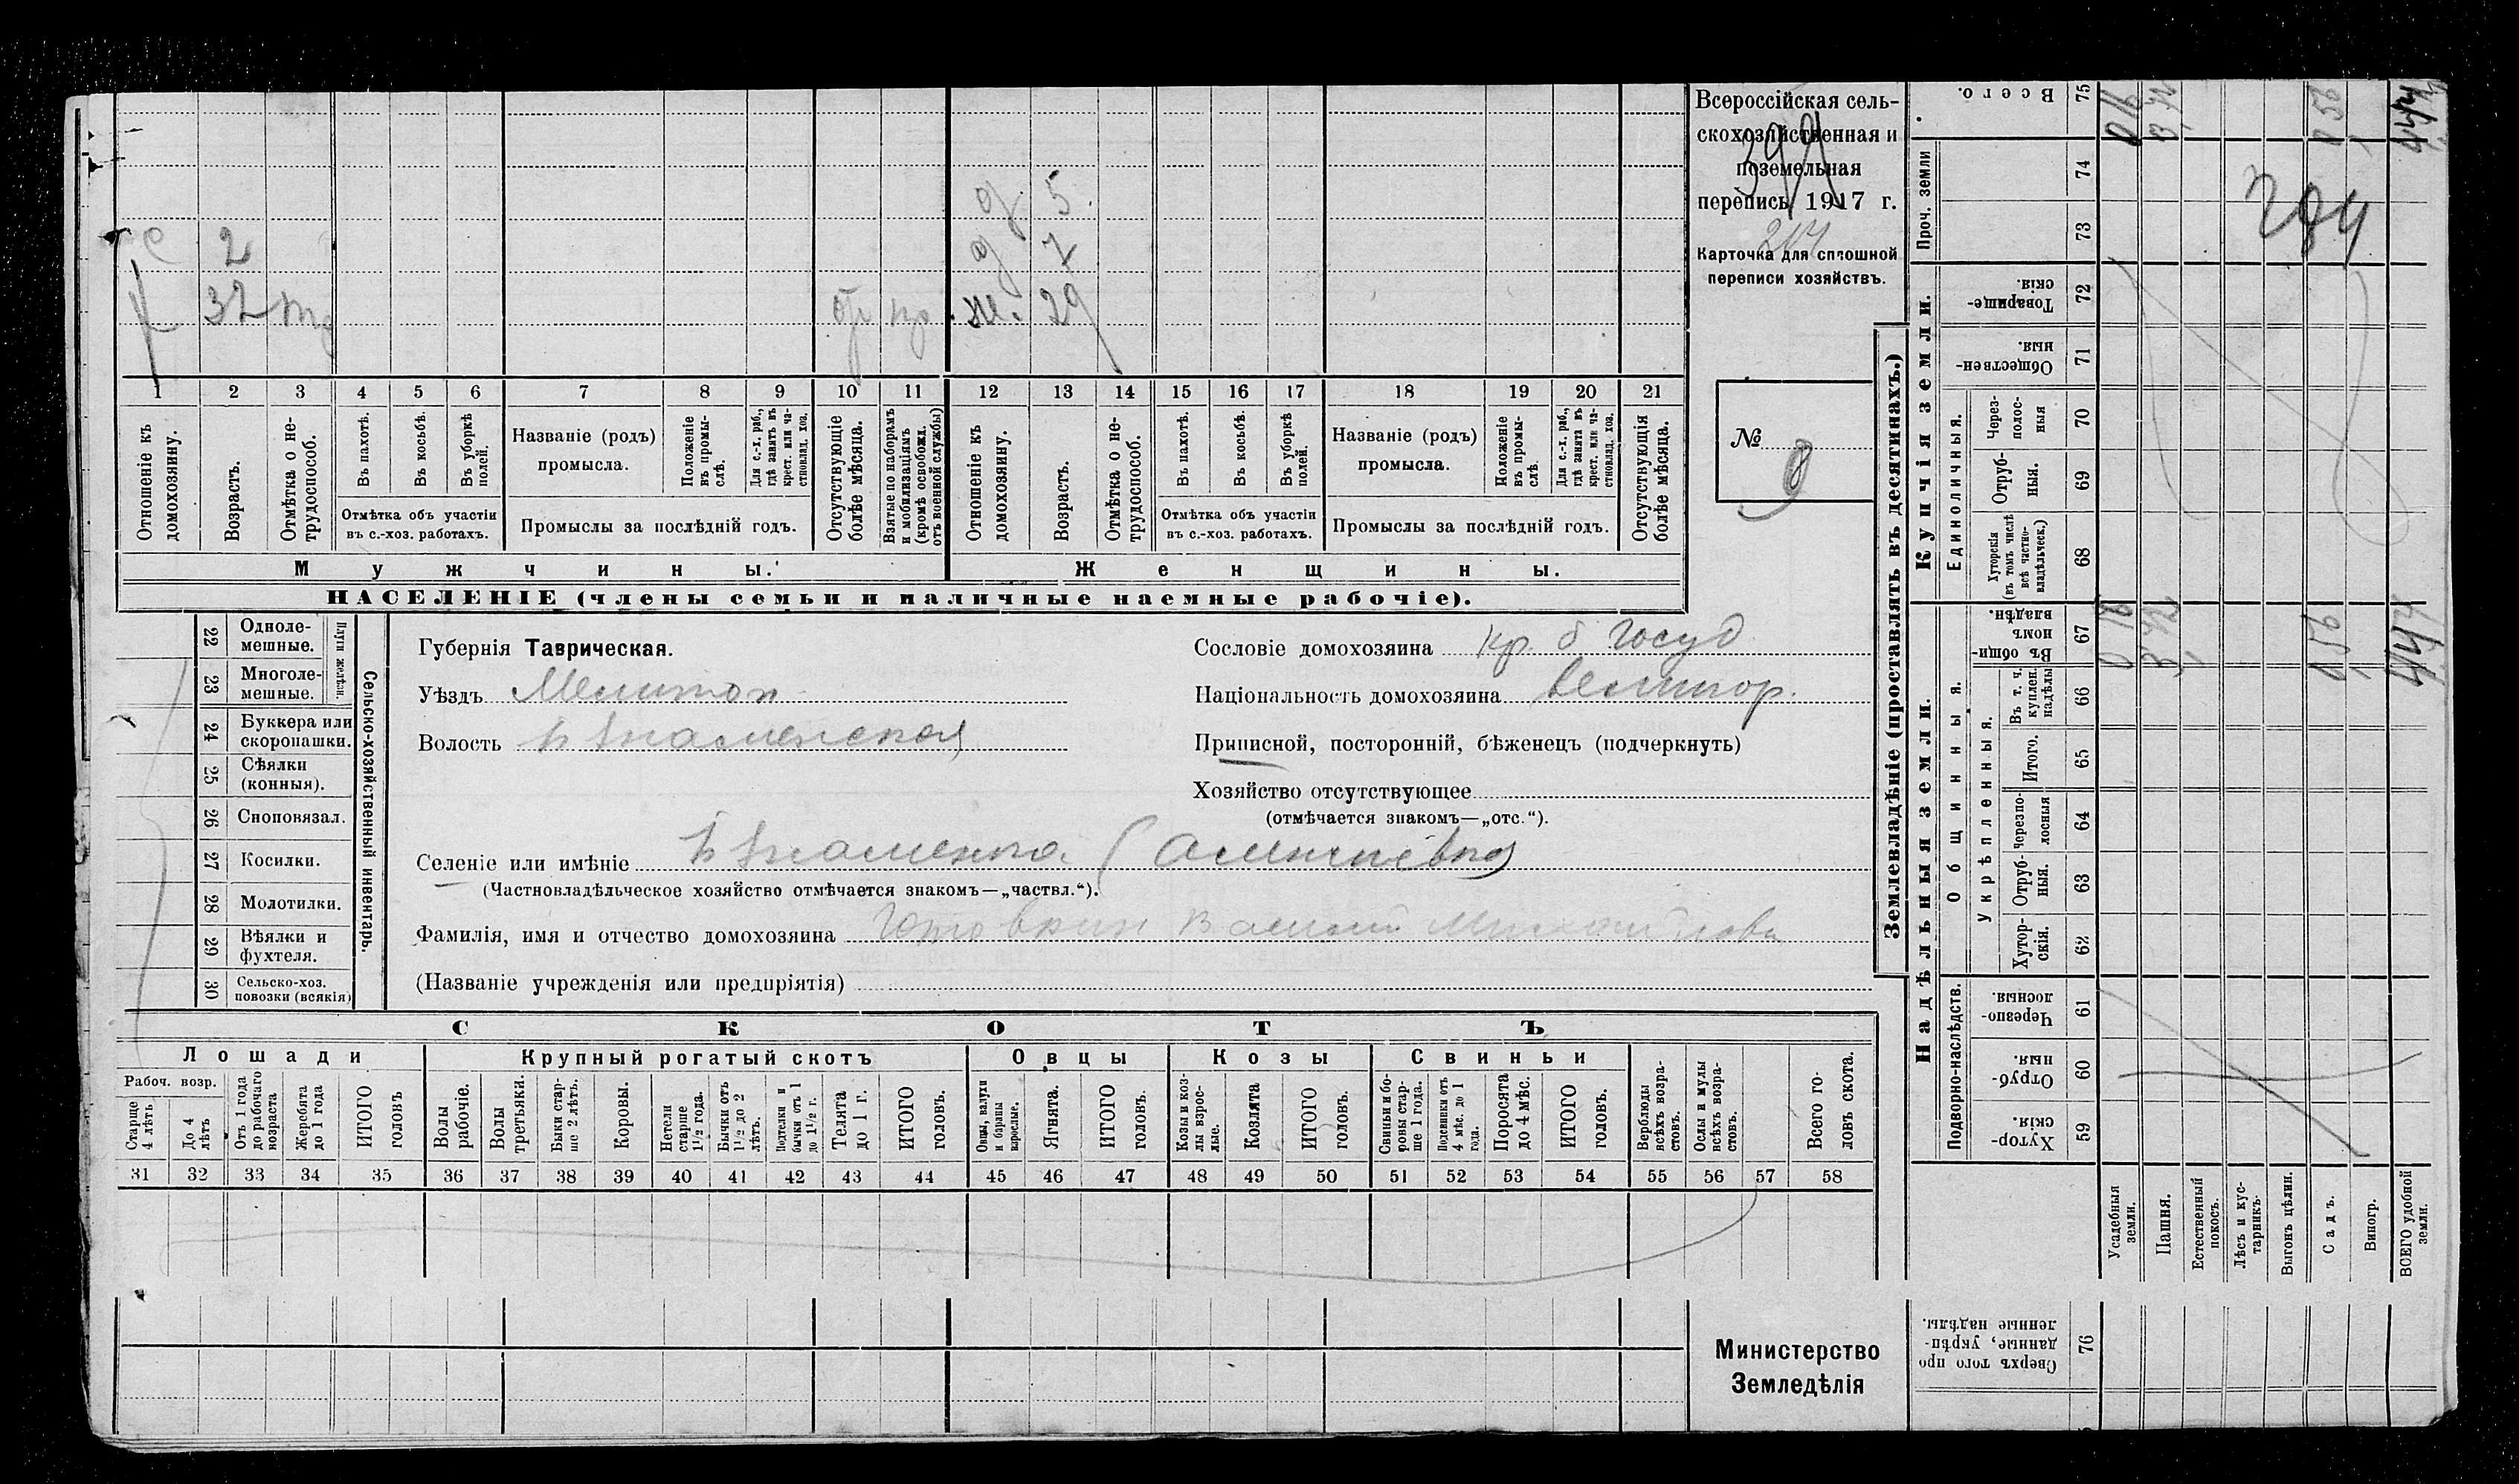 с 2
32
д 5.
д 7
ж. 29
1 2 3 4 5 6 7 8 9 10 11 12 13 14 15 16 17 18 19 20 21
Отношеніе къ домохозяину.
Возрастъ.
Отмѣтка о нетрудоспособ.
Въ пахотѣ.
Въ косьбѣ.
Въ уборкѣ полей.
Отмѣтка объ участіи
въ с.-хоз. работахъ.
Названіе (родъ)
промысла.
Положеніе въ промы-
слѣ.
Для с.-х. раб.,
гдѣ занятъ въ
крест. или ча-
стновлад. хоз.
Промыслы за послѣдній годъ.
Отсутствующіе
болѣе мѣсяца.
Взятые по наборамъ
и мобилизаціямъ
(кромѣ освобожд.
отъ военной службы)
Отношеніе къ
домохозяину.
Возрастъ.
Отмѣтка о не-
трудоспособ.
Въ пахотѣ.
Въ косьбѣ.
Въ уборкѣ
полей.
Отмѣтка объ участіи
въ с.-хоз. работахъ.
Названіе (родъ)
промысла.
Положеніе
въ промы-
слѣ.
Для с.-х. раб.,
гдѣ занята въ
крест. или ча-
стновлад. хоз.
Промыслы за послѣдній годъ.
Отсутствующія
болѣе мѣсяца.
Мужчины.
Женщины.
НАСЕЛЕНІЕ (члены семьи и наличные наемные рабочіе).
Всероссійская сель-
скохозяйственная и
поземельная
перепись 1917 г.
Карточка для сплошной
переписи хозяйствъ.
№ 8
22 Одноле-
мешные.
23 Многоле-
мешные.
Плуги желѣзн.
24 Буккера или
скоропашки.
25 Сѣялки
(конныя).
26 Сноповязал.
27 Косилки.
28 Молотилки.
29 Вѣялки и
фухтеля.
30 Сельско-хоз.
повозки (всякія)
Сельско-хозяйственный инвентарь.
Губернія Таврическая.
Уѣздъ Мелитоп
Волость Б Знаменская
Селеніе или имѣніе Б Знаменка
(Частновладѣльческое хозяйство отмѣчается знакомъ—„частвл.“).
Фамилія, имя и отчество домохозяина Василій Михайлов
(Названіе учрежденія или предпріятія)
Сословіе домохозяина кр. б Госуд
Національность домохозяина великор.
Приписной, посторонній, бѣженецъ (подчеркнуть)
Хозяйство отсутствующее
(отмѣчается знакомъ—„отс.“).
СКОТЪ
Лошади
Рабоч. возр.
Старше
4 лѣтъ
До 4
лѣтъ
Отъ 1 года
до рабочаго
возраста
Жеребята
до 1 года
ИТОГО
головъ
Крупный рогатый скотъ
Волы
рабочіе.
Волы
третьяки.
Быки стар-
ше 2 лѣтъ.
Коровы.
Нетели
старше
1½ года.
Бычки отъ
1½ до 2
лѣтъ.
Подтелки и
бычки отъ 1
до 1½ г.
Телята
до 1 г.
ИТОГО
головъ.
Овцы
Овцы, валухи
и бараны
взрослые.
Ягнята.
ИТОГО
головъ.
Козы
Козы и коз-
лы взрос-
лые.
Козлята
ИТОГО
головъ.
Свиньи
Свиньи и бо-
ровы стар-
ше 1 года.
Подсвинки отъ
4 мѣс. до 1
года.
Поросята
до 4 мѣс.
ИТОГО
головъ.
Верблюды
всѣхъ возра-
стовъ.
Ослы и мулы
всѣхъ возра-
стовъ.
Всего го-
ловъ скота.
31 32 33 34 35 36 37 38 39 40 41 42 43 44 45 46 47 48 49 50 51 52 53 54 55 56 57 58
Министерство
Земледѣлія
Землевладѣніе (проставлять въ десятинахъ.)
Купчія земли.
Надѣльныя земли.
Всего. 75
Проч. земли 74 73
Товарище-
скія. 72
Обществен-
ныя. 71
Единоличныя.
Через-
полос-
ныя 70
Отруб-
ныя. 69
Хуторскія
(въ томъ числѣ
всѣ частно-
владѣльческ.) 68
Общинныя.
Въ общи-
номъ
владѣн. 67
Укрѣпленныя.
Въ т. ч.
куплен.
надѣлы 66
Итого. 65
Черезпо-
лосныя 64
Отруб-
ныя. 63
Хутор-
скія. 62
Подворно-наслѣдств.
Черезпо-
лосныя. 61
Отруб-
ныя. 60
Хутор-
скія. 59
Усадебныя
земли.
Пашня.
Естественный
покосъ.
Лѣсъ и кус-
тарникъ.
Выгонъ цѣлин.
Садъ.
Виногр.
ВСЕГО удобной
земли.
Сверхъ того про-
данные, укрѣп-
ленные надѣлы. 76
0 16
3,42
0 56
284